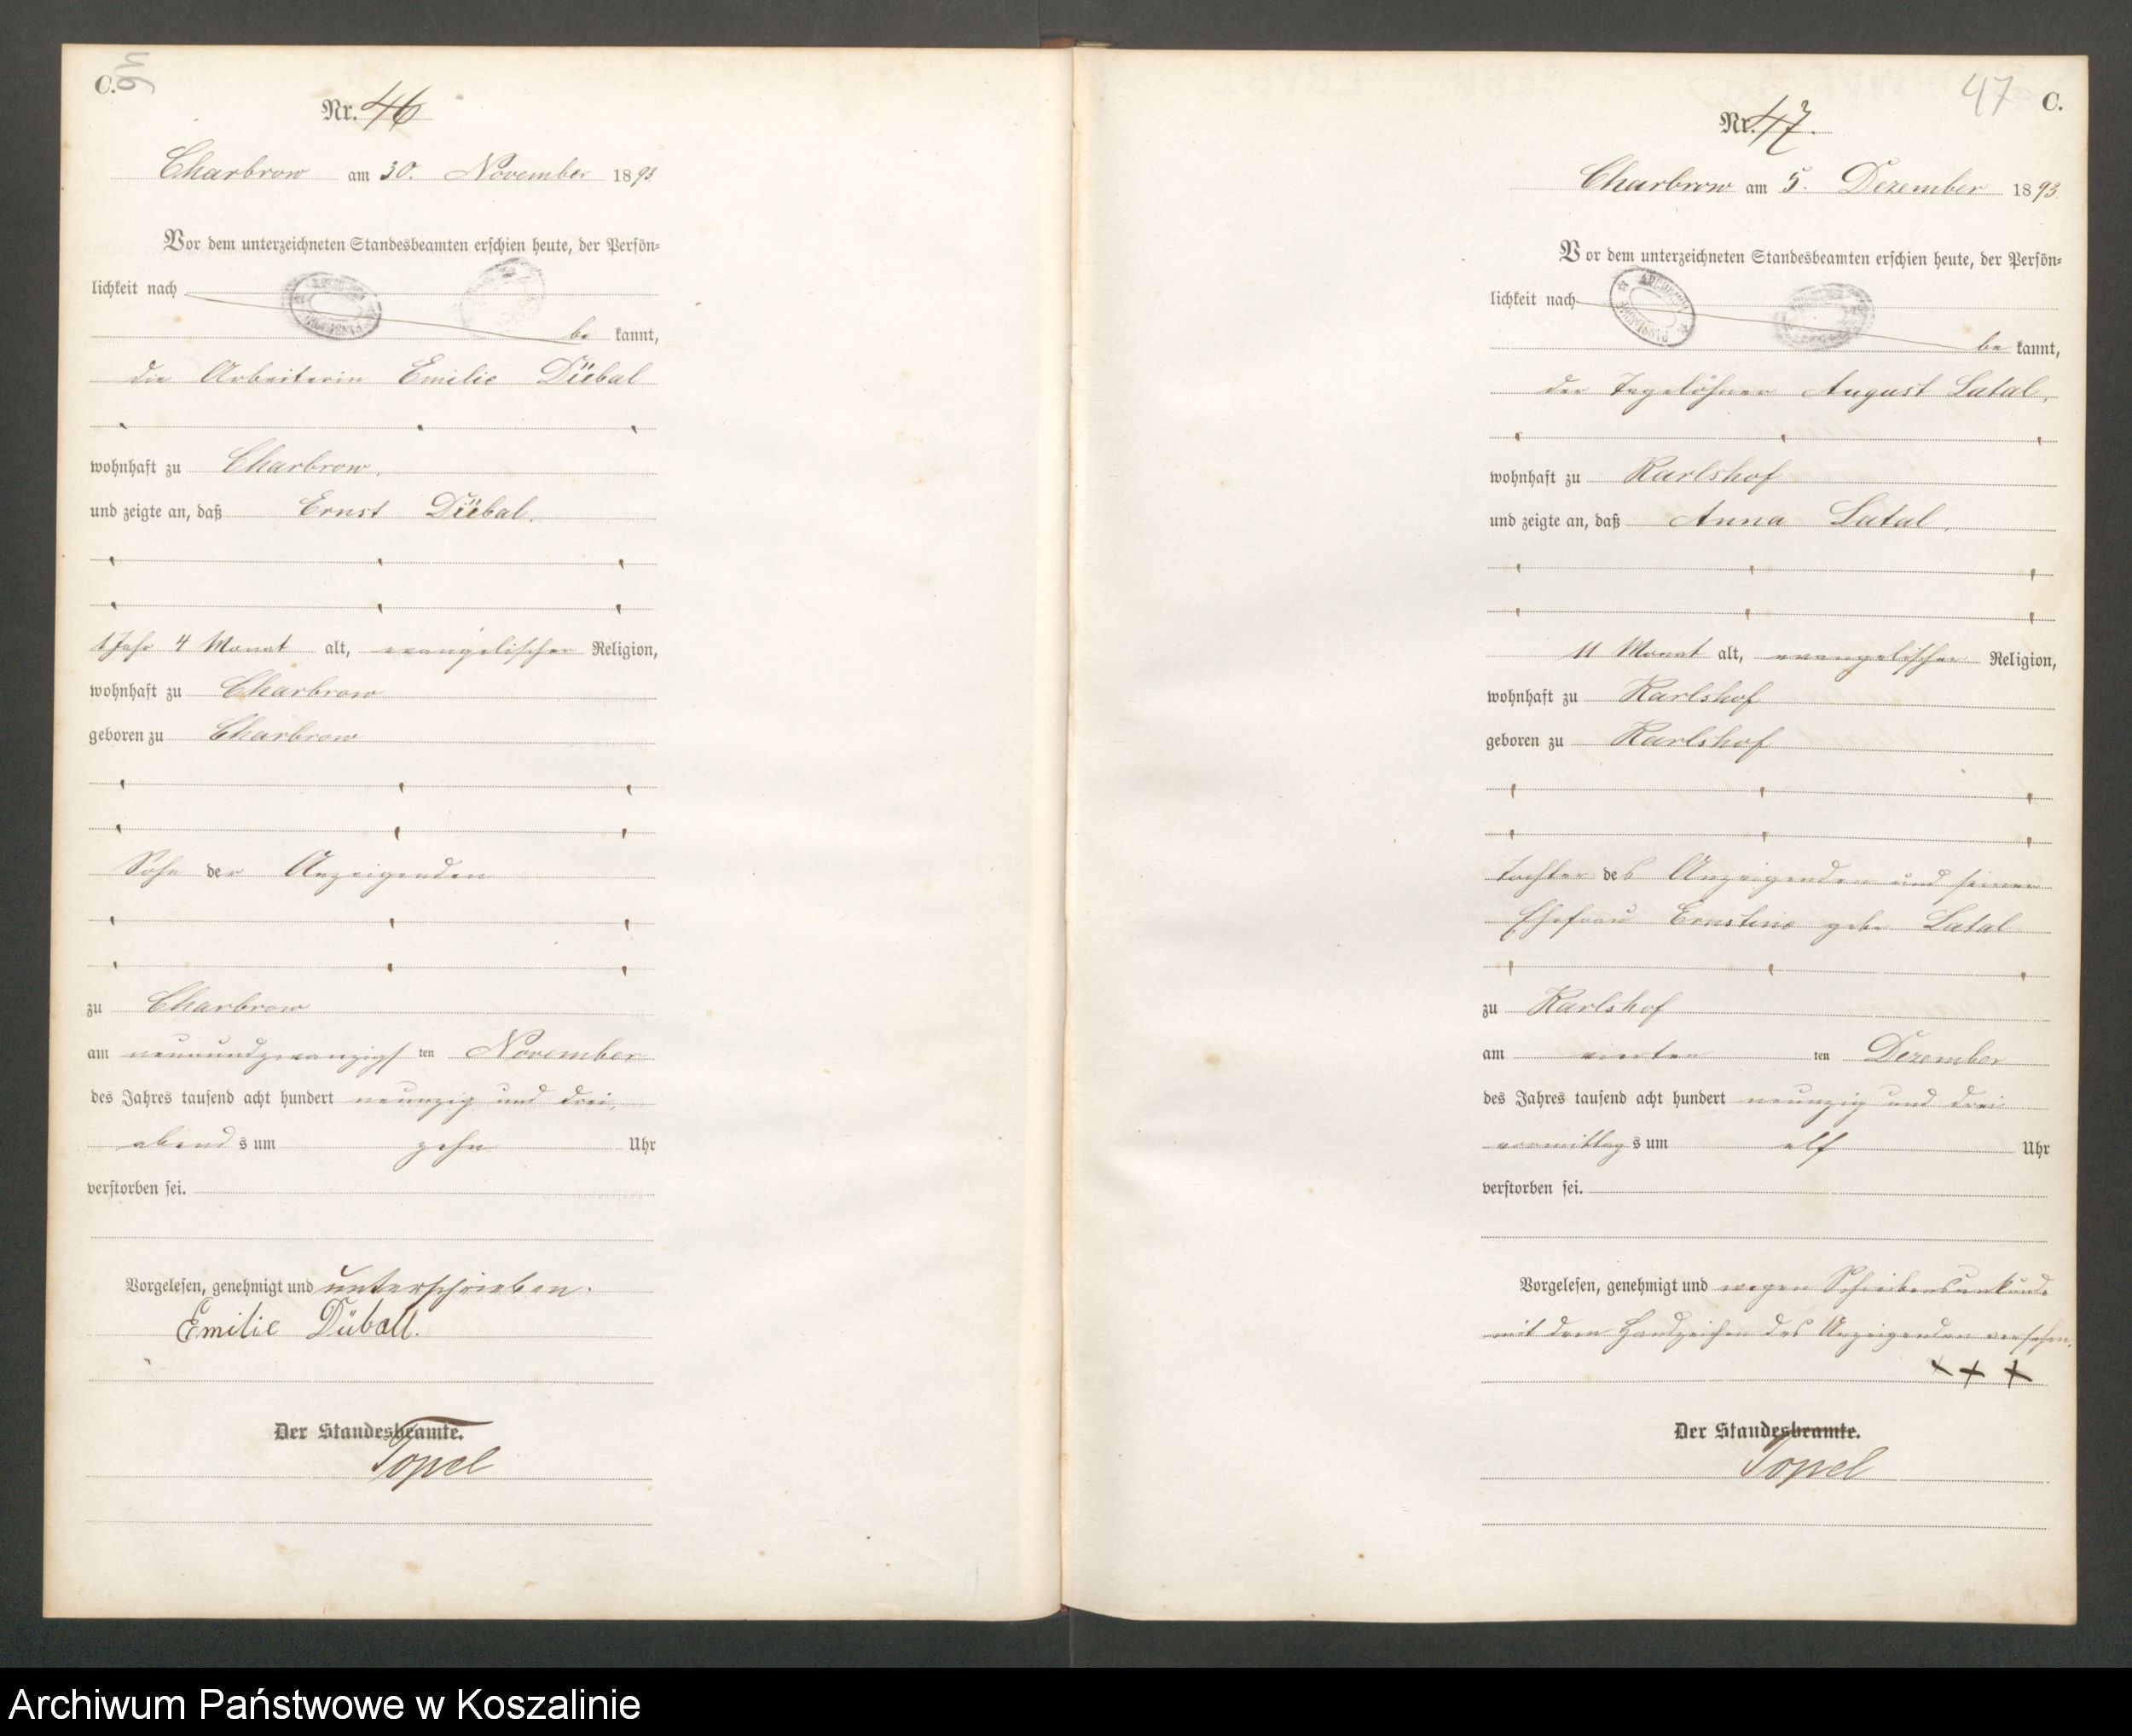 C.
46
Nr. 46
Charbrow am 30. November 1893.
Vor dem unterzeichneten Standesbeamten erschien heute, der Persön-
lichkeit nach
be kannt,
die Arbeiterin Emilie Dübal
wohnhaft zu Charbrow,
und zeigte an, daß Ernst Dübal,
1 Jahr 4 Monat alt, evangelischer Religion,
wohnhaft zu Charbrow
geboren zu Charbrow
Sohn der Anzeigenden
zu Charbrow
am neunundzwanzigs ten November
des Jahres tausend acht hundert neunzig und drei,
abend s um zehn Uhr
verstorben sei.
Vorgelesen, genehmigt und unterschrieben.
Emilie Düball.
Der Standesbeamte.
Topel
47 C.
Nr. 47.
Charbrow am 5. Dezember 1893
Vor dem unterzeichneten Standesbeamten erschien heute, der Persön-
lichkeit nach
be kannt,
der Tagelöhner August Latal,
wohnhaft zu Karlshof
und zeigte an, daß Anna Latal,
11 Monat alt, evangelischer Religion,
wohnhaft zu Karlshof
geboren zu Karlshof
Tochter des Anzeigenden und seiner
Ehefrau Ernstine geb. Latal
zu Karlshof
am vierten ten Dezember
des Jahres tausend acht hundert neunzig und drei
vormittag s um elf Uhr
verstorben sei.
Vorgelesen, genehmigt und wegen Schreibensunkunde
mit dem Handzeichen des Anzeigenden versehen.
+ + +
Der Standesbeamte.
Topel
Archiwum Państwowe w Koszalinie